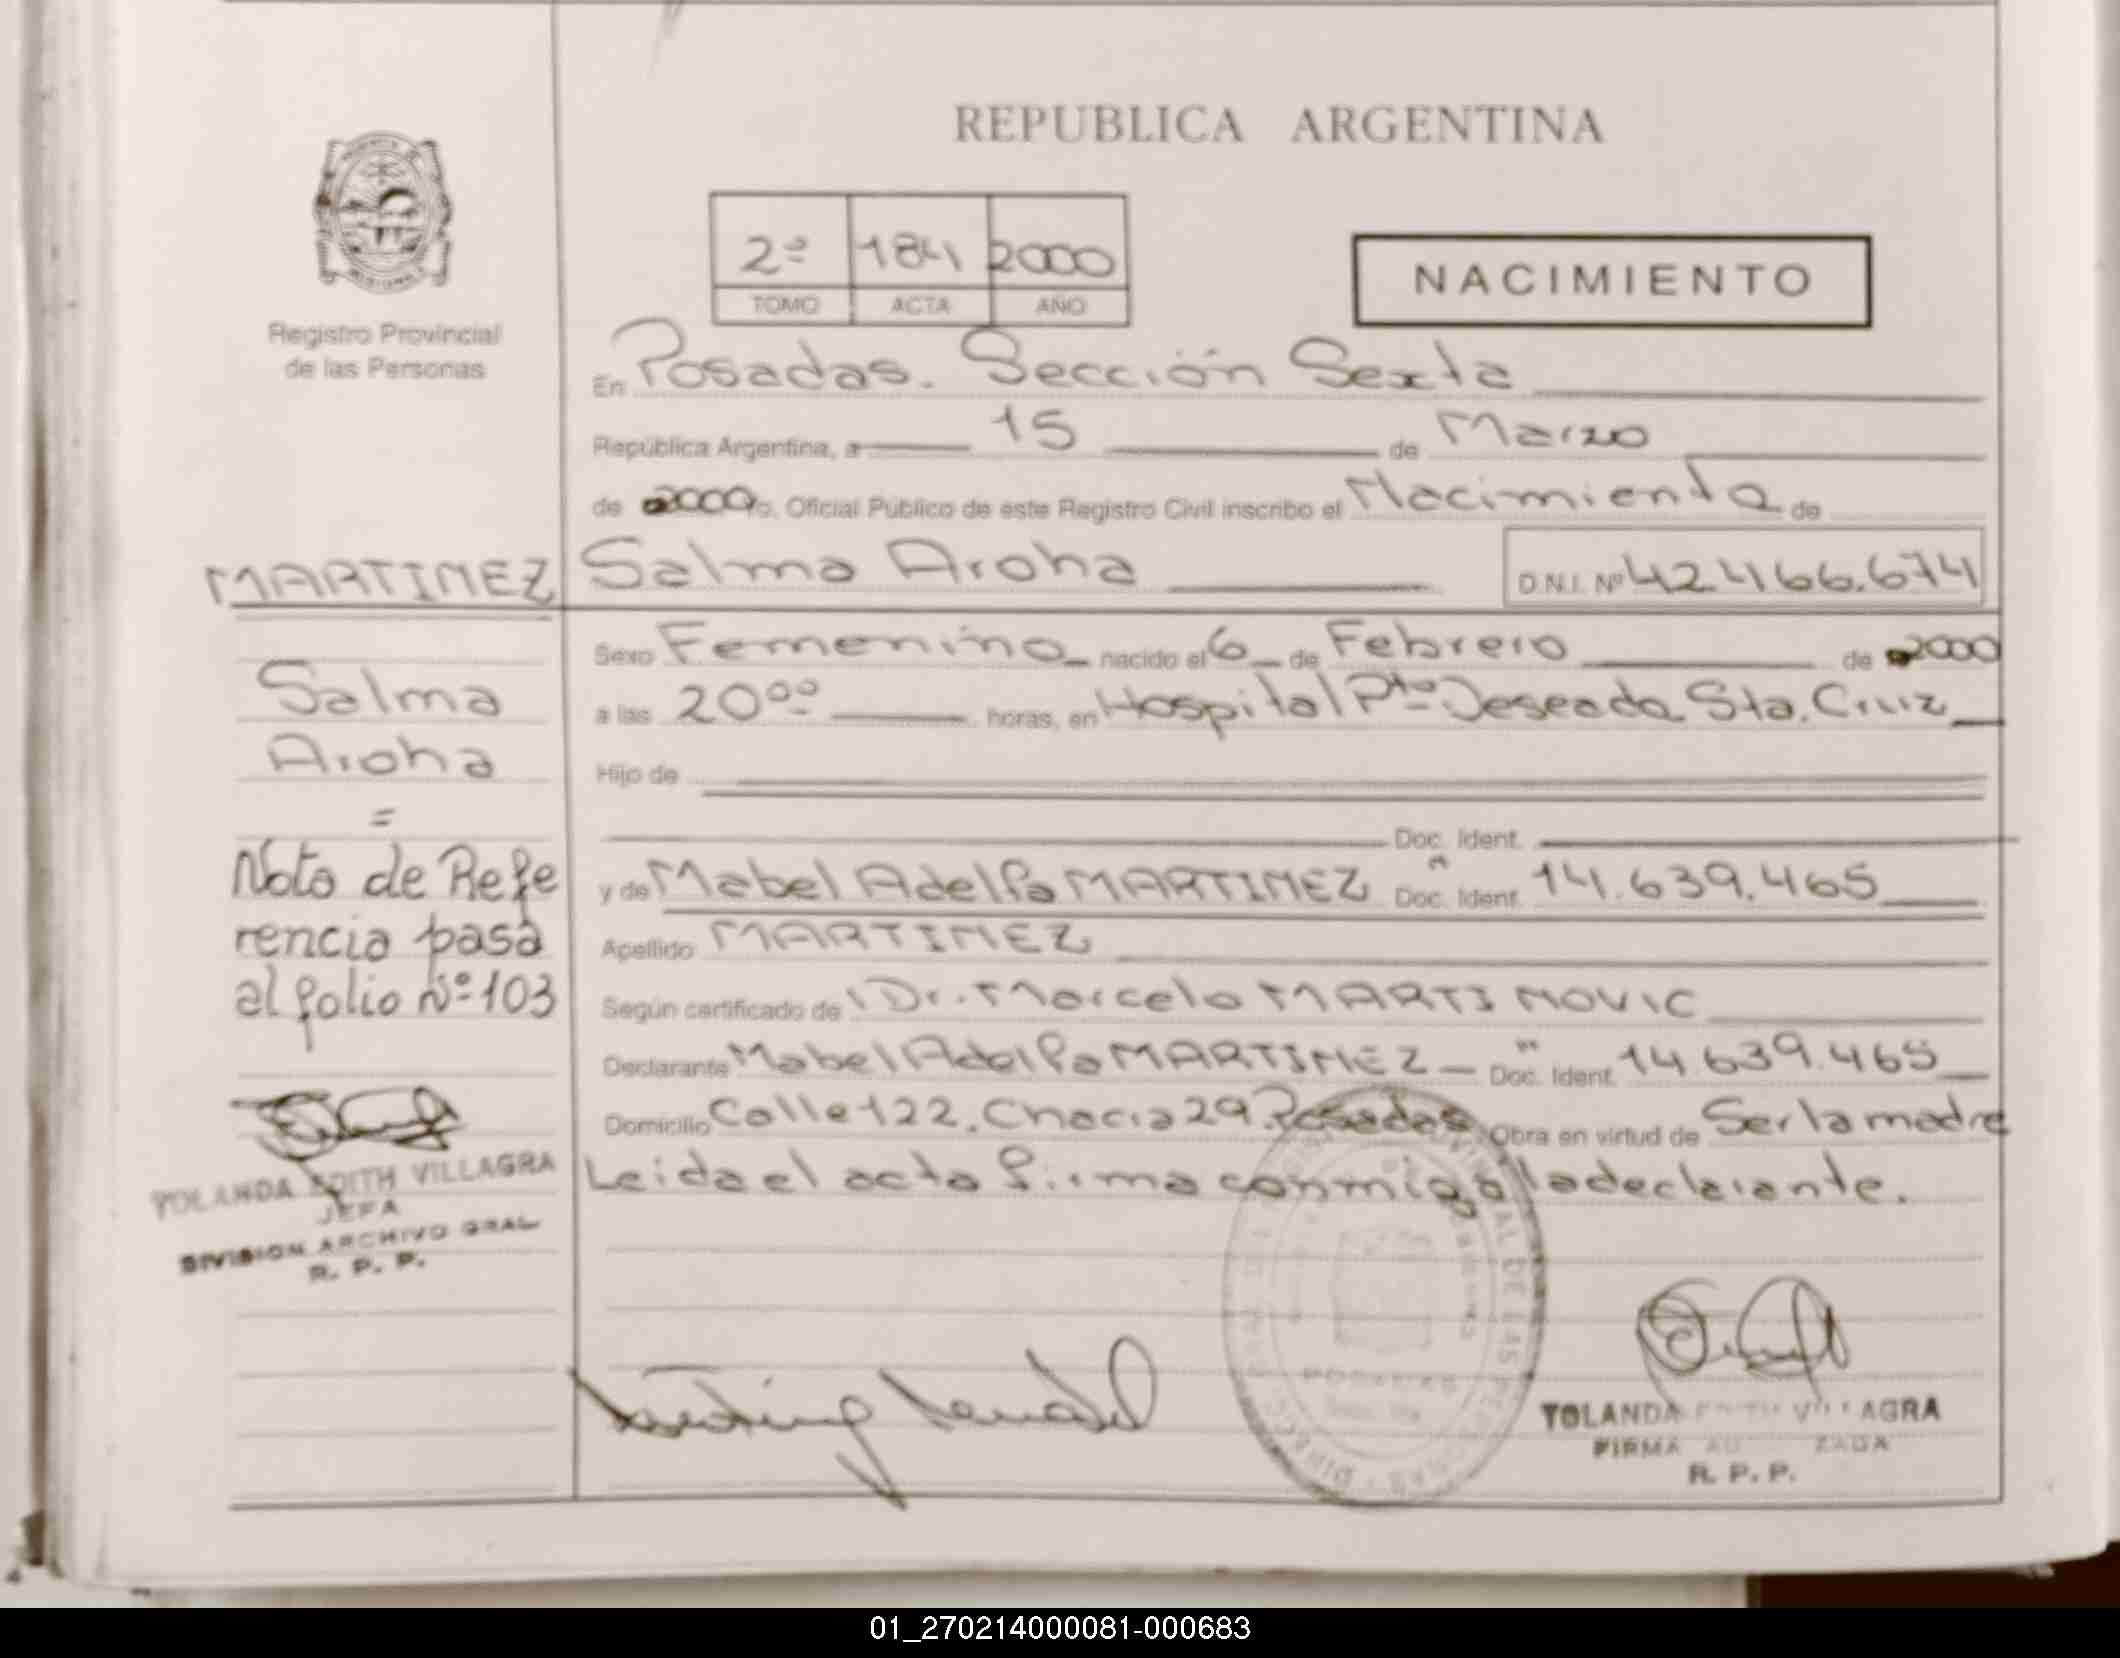 REPUBLICA ARGENTINA
2º 1841 2000
TOMO ACTA AÑO
NACIMIENTO
Registro Provincial
de las Personas
En Posadas. Sección Sexta
República Argentina, a 15 de Marzo
de 2000 yo, Oficial Público de este Registro Civil inscribo el Nacimiento de
MARTINEZ Salma Aroha D.N.I. Nº 42.466.674
Sexo Femenino nacido el 6 de Febrero de 2000
a las 20⁰⁰ horas, en Hospital Pto Deseado Sta. Cruz
Hijo de
Doc. Ident.
y de Mabel Adelfa MARTINEZ Doc. Ident. 14.639.465
Apellido MARTINEZ
Según certificado de Dr. Marcelo MARTINOVIC
Declarante Mabel Adelfa MARTINEZ Doc. Ident. 14.639.465
Domicilio Calle 122. Chacra 29. Posadas Obra en virtud de Ser la madre
Leida el acta firma conmigo la declarante.
Salma
Aroha
=
Nota de Refe
rencia pasa
al folio Nº 103
YOLANDA EDITH VILLAGRA
JEFA
DIVISION ARCHIVO GRAL
R. P. P.
POSADAS
YOLANDA EDITH VILLAGRA
FIRMA AUTORIZADA
R. P. P.
01_270214000081-000683